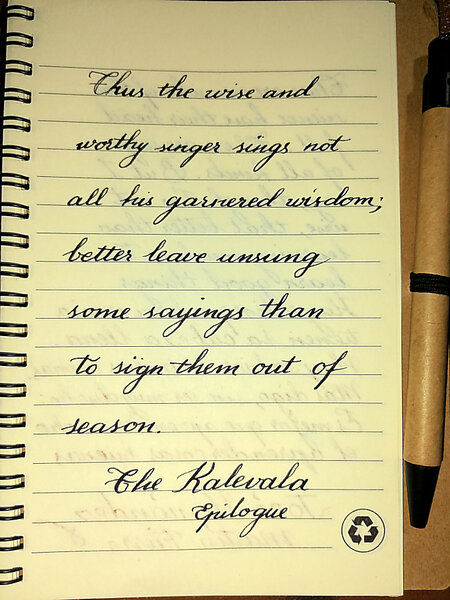 Thus the wise and
worthy singer sings not
all his garnered wisdom;
better leave unsung
some sayings than
to sign them out of
season.
The Kalevala
Epilogue